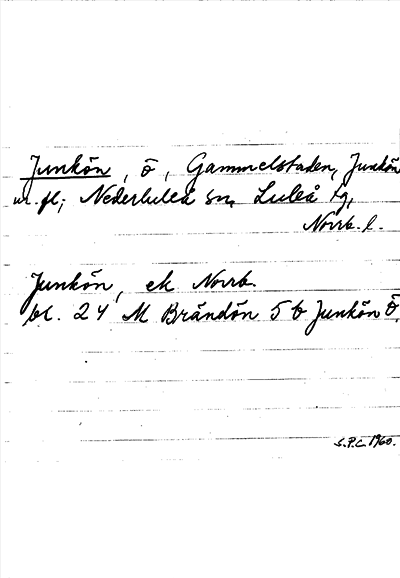 Junkön, ö, Gammelstaden, Junkön
m. fl; Nederluleå sn, Luleå tg,
Norrb. l.
Junkön, ek Norrb.
bl. 24 M Brändön 5 b Junkön Ö.
S.P.C. 1960.